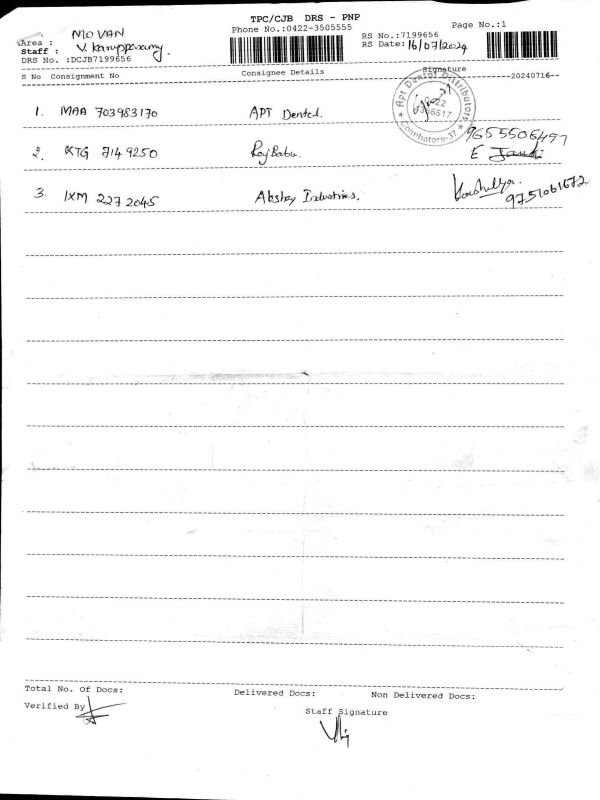 TPC/CJB DRS - PNP
Page No.:1
Phone No.:0422-3505555
MO VAN
Area :
Staff : V. Karuppasamy.
RS No.:7199656
RS Date: 16/07/2024
DRS No. :DCJB7199656
S No Consignment No Consignee Details Signature --20240716--
1. MAA 703983170 APT Dental.
Apt Dental Distributors
Coimbatore-37
2. KTG 7149250 Raj Babu. 9655506497
E
3. IXM 2272045 Akshay Industries. 9751061672
Total No. Of Docs: Delivered Docs: Non Delivered Docs:
Verified By
Staff Signature